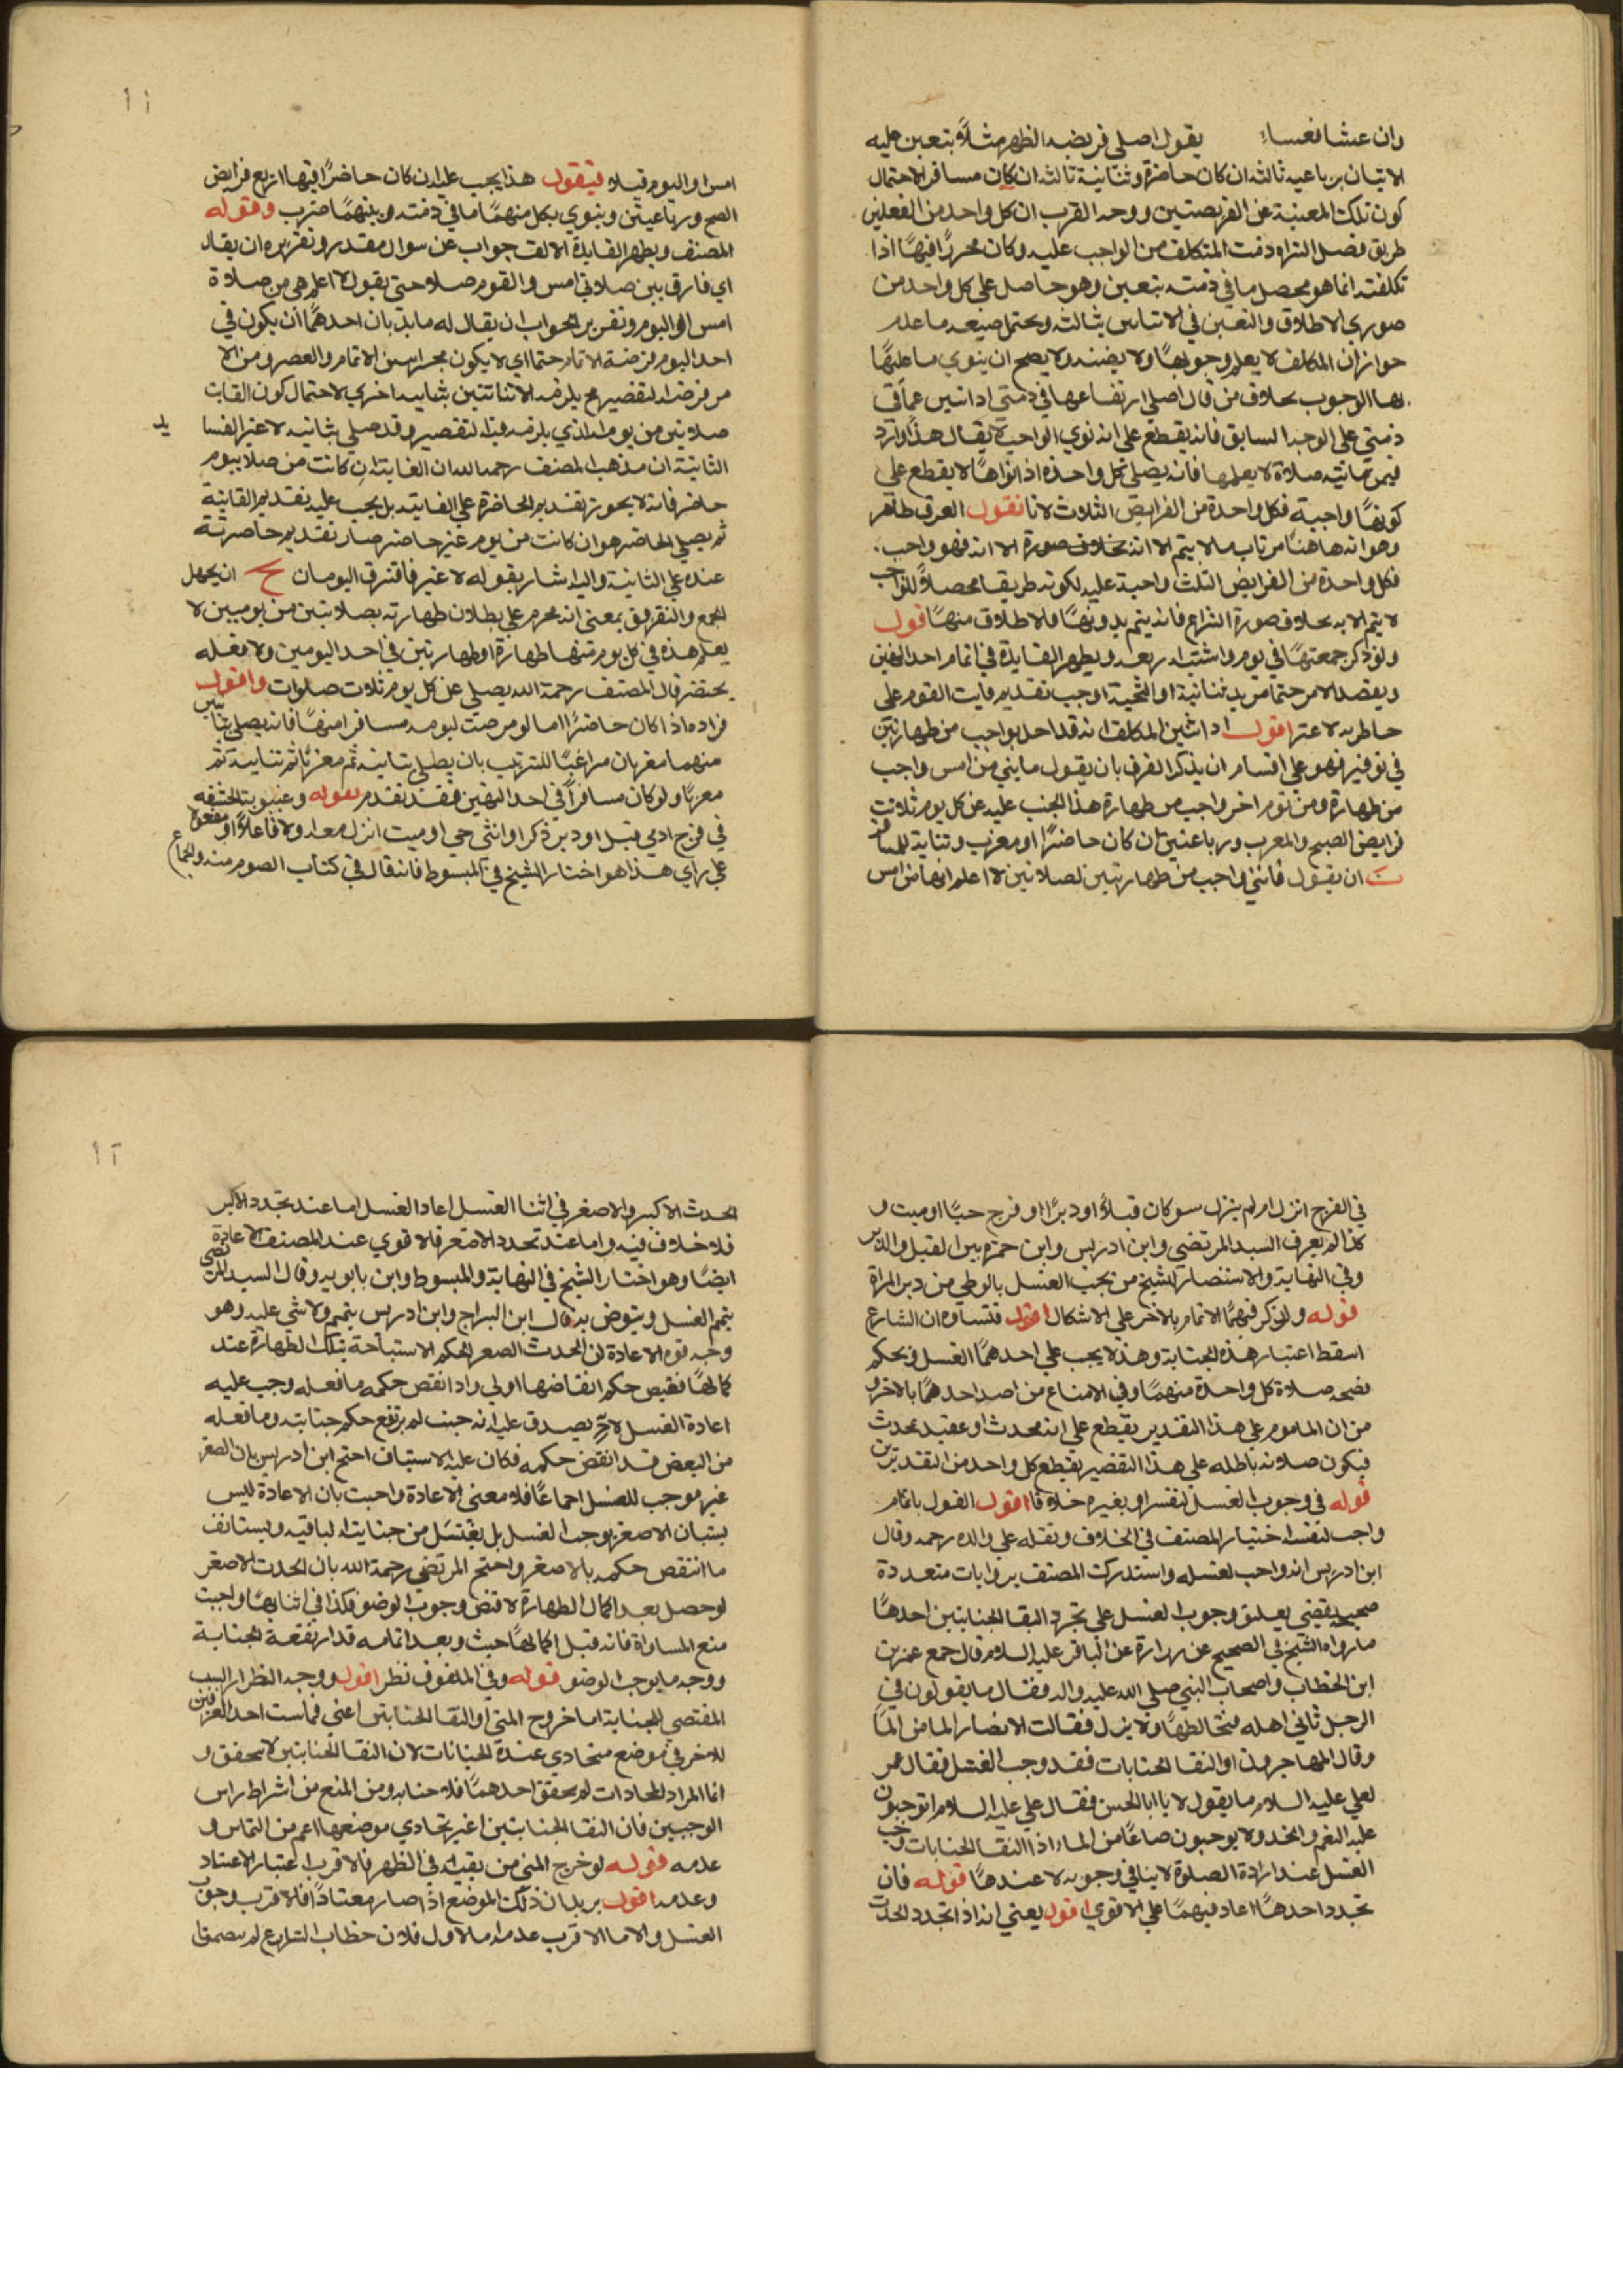 وان عشا نعسا يقول اصلي فريضه الظهر مثلاً يتعين عليه
الاتيان برباعيه ثالثه ان كان حاضرة وثنائية ثالثه ان كان مسافر الاحتمال
كون تلك المعينة غير الفريضتين ووجه القرب ان كل واحد من الفعلين
طريق ذمت المتكلف من الواجب عليه وكان محررًا فيهما اذا
تكلفته انما هو محصل ما في ذمته بتعين وهو حاصل على كل واحد من
صورتي الاطلاق والتعين في الاتيان بثالثه ويحتمل ما عدم
جواز ان المكلف لا يعلم وجوبها ولا يصح ان ينوي ما عليها
بها الوجوب بخلاف من قال اصلي ارتفاعها في ذمتي اداتين عما في
ذمتي على الوجه السابق فانه يقطع على انه نوي الواجبة لا يقال هذا وارد
فيمن فاتيته صلاة لا يعلمها فانه يصلي كل واحدة اذ انواها لا يقطع على
كونها واجبة فكل واحدة من الفرايض الثلاث لانا نقول الفرق ظاهر
وهو انه هاهنا من باب ما لا يتم الا انه بخلاف صورة الا انه فهو واجب
فكل واحدة من الفرايض الثلث واجبة عليه لكونه طريقا محصلاً للواجب
لا يتم الا به بخلاف صورة النزاع فانه يتم بدونها فالاطلاق منها قوله
ولو ذكر جمعتهما في يوم واشتبه اربعه ويظهر الفايدة في اتمام احد اليومين
ويقصد الامر حتما مزيد ثنائية او التحية اوجب تقديم فايت القوم على
حاطريه لا عتر اقول اذا تيقن المكلف انه قد اخل بواجب من طهارتين
في يومين فهو على اقسام ان يذكر الفرق بان يقول فاتني من امس واجب
من طهارة ومن يوم اخر واجب من طهارة هذا الجنب عليه عن كل يوم ثلاث
فرايض الصبح والمغرب ورباعتين ان كان حاضرًا او مغرب وثنائية للمسافر
ت ان يقول فاتني واجب من طهارتين لصلاتين لا اعلم انهما من امس
١١
امس او اليوم قبله فيقول هذا يجب عليه ان كان حاضرًا فيها اربع فرايض
الصبح ورباعيتين وينوي بكل منهما ما في ذمته وبينهما مغرب وقوله
المصنف ويظهر الفايدة الالف جواب عن سوال مقدر وتقريره ان يقال
اي فارق بين صلاتي امس والقوم صلاة حتى يقول لا اعلم هي من صلاة
امس او اليوم وتقرير الجواب ان يقال له ما بان احدهما ان يكون في
احد اليوم فرضه الاتمام حتما اي لا يكون مخيرا بين الاتمام والعصر ومن الا
من فرضه التقصير مح يلزمه الاثنانتين بثنائيه اخري لاحتمال كون الفايت
صلاتين من يومه الذي يلزمه فيه التقصير وقد صلى ثنائيه لا غير الفسا
الثانية ان مذهب المصنف رحمه الله ان الفايتة ان كانت من صلاة يوم
حاضر فانه لا يجوز تقديم الحاضرة على الفايته بل يجب عليه تقديم الفايتة
ثم يصلي الحاضر هوان كانت من يوم غير حاضر صار تقديم حاضرته
عنده على الثانية واليه اشار بقوله لا غير فافترق اليومان ح ان يجهل
الجمع والتفريق بمعنى انه محرم على بطلان طهارته بصلاتين من يومين لا
يعلم هذه في كل يوم منها طهارة او طهارتين في احد اليومين ولا فعله
يختصر قال المصنف رحمة الله يصلي عن كل يوم ثلاث صلوات واقول
مراده اذا كان حاضرًا اما لو مرضت ليومه مسافر امنهما فانه يصلي ثنايتين
منهما مغربان مراعيًا للترتيب بان يصلي ثنائية ثم مغربا ثم ثنايية ثم
مغربا ولو كان مسافرًا في احد اليومين فقد تقدم قوله وغيبوبة الحشفه
في فرج ادمي قبل او دبر ذكر او انثى حي او ميت انزل معه اولا فاعلاً او مفعولا
على راي هذا هو اختيار الشيخ في المبسوط فانه قال في كتاب الصوم منه والجماع
في الفرج انزل ام لم ينزل سو كان قبلاً او دبرًا او فرج حيًا او ميت و
كذا لم يعرف السيد المرتضي وابن ادريس وابن حمزه بين القبل والدبر
وفي النهاية والاستبصار الشيخ من يجب الغسل بالوطي من دبر المراة
قوله ولو ذكر فيهما الاتمام بالاخر على الاشكال اقول فتساوه ان الشارع
اسقط اعتبار هذه الجنابة وهذه لا يجب على احدهما الغسل ويحكم
بصحه صلاة كل واحدة منهما وفي الامتناع من اصد احدهما بالاخر و
من ان الماموم على هذا التقدير يقطع على انه محدث او عقيد بحدث
فيكون صلاته باطله على هذا التقدير يقطع كل واحد من التقديرين
قوله في وجوب الغسل لنفسه او بغيره خلافا اقول القول باتمام
واجب لنفسه اختيار المصنف في الخلاف ونقله على والده رحمه وقال
ابن ادريس انه واجب لغسله واستدركت المصنف بروايات متعددة
صحيحه يقضي يعليق وجوب الغسل على تجرد التقا الجنابتين احدها
ما رواه الشيخ في الصحيح عن زرارة عن الباقر عليه السلام قال جمع عمر بن
ابن الخطاب واصحاب النبي صلى الله عليه واله فقال ما يقولون في
الرجل ثاني اهله فيخالطها ولا ينزل فقالت الانصار الما من الما
وقال المهاجرون اوالتقا الجنابات فقد وجب الغسل فقال عمر
لعلي عليه السلام ما يقول لا يا ابا الحسن فقال علي عليه السلام اتوجبون
عليه النعم والحد ولا يوجبون صاعًا من الماء اذا التقا الجنابات وجب
الغسل عند ارادة الصلوة لا ينافي وجوبه لا عندها قوله فان
تجدد احدهما اعاد فيهما على الاقوي اقول يعني انه اذا تجدد الحدث
١٢
الحدث الاكبر والاصغر في اثنا الغسل اعاد الغسل اما عند تجدد الاكبر
فلا خلاف فيه واما عند تجدد الاصغر فالاقوي عند المصنف الاعادة
ايضًا وهو اختيار الشيخ في النهاية والمبسوط وابن بابويه وقال السيد المرتضى
يتم الغسل ويتوض به قال ابن البراج وابن ادريس يتمم ولا شى عليه وهو
وجه قوه الاعادة ان الحدث الصغر الحكم الاستباحة بتلك الطهارة عند
كمالها فقيص حكم انقاضها اولى واذا انقص حكمه ما فعله وجب عليه
اعادة الغسل لانه يصدق عليه انه جنب لم يرتفع حكم جنابته وما فعله
من البعض قد انقض حكمه فكان عليه الاستيناف احتج ابن ادريس بان الصغر
غير موجب للغسل اجماعًا فلا معنى الاعادة واجبت بان الاعادة ليس
بسبان الاصغر يوجب الغسل بل يغتسل من جنايته الباقيه ويستانف
ما انتقص حكمه بالاصغر واحتج المرتضي رحمة الله بان الحدث الاصغر
لو حصل بعد اكمال الطهارة لاقتضى وجوب الوضو فكذا في اثنايها واجبت
منع المساواة فانه قبل اكمالها حيث وبعد اتمامه قد ارتفعة الجنابة
ووجه ما يوجب الوضو قوله وفي الملفوف نظر اقول ووجه النظر ان السبب
المقتضي للجنابة اما خروج المني او التقا الجنابتين اعني فماست احد الفرجين
للاخر في موضع متحادي عنده الجنابات لان التقا الجنابتين لا يتحقق و
انما المراد المحادات لم يتحقق احدهما فلا جنابه ومن المنع من اشراط راس
الوجبين فان التقا الجنابتين اعني تحادي موضعها اعم من التماس و
عدمه قوله لو خرج المني من بقيه في الظهر فالاقرب اعتبار الاعتياد
وعدمه اقول يريد ان ذلك الموضع اذا صار معتادًا فالاقرب وجوب
الغسل والا ما الاقرب عدمه اما الاول فلان خطاب الشارع لم